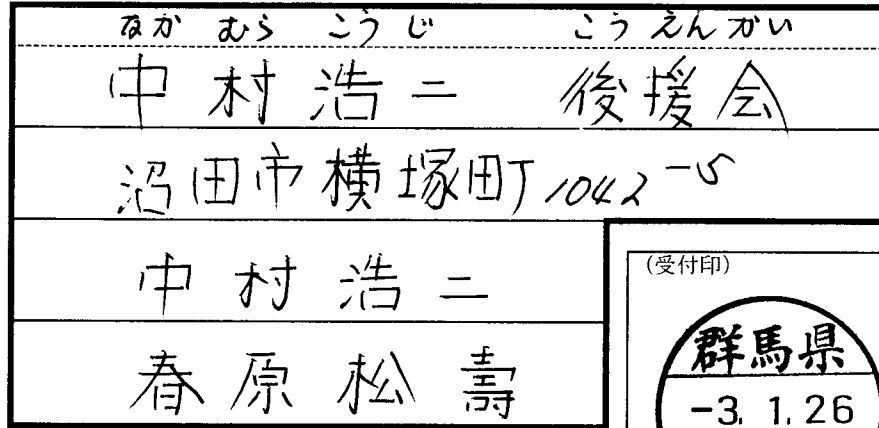 なかむら こうじ こうえんかい
中村浩二 後援会
沼田市横塚町1042-5
中村浩二
春原松壽
(受付印)
群馬県
-3.1.26